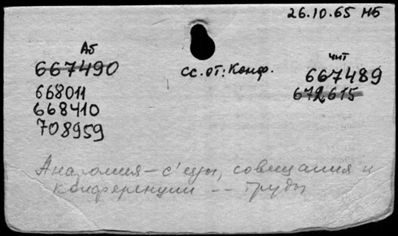 26.10.65 Нб
Аб
667490
668011
668410
708959
сс.от: Конф.
чит
667489
672615
Анатомия — с'езды, совещания и
конференции -- труды